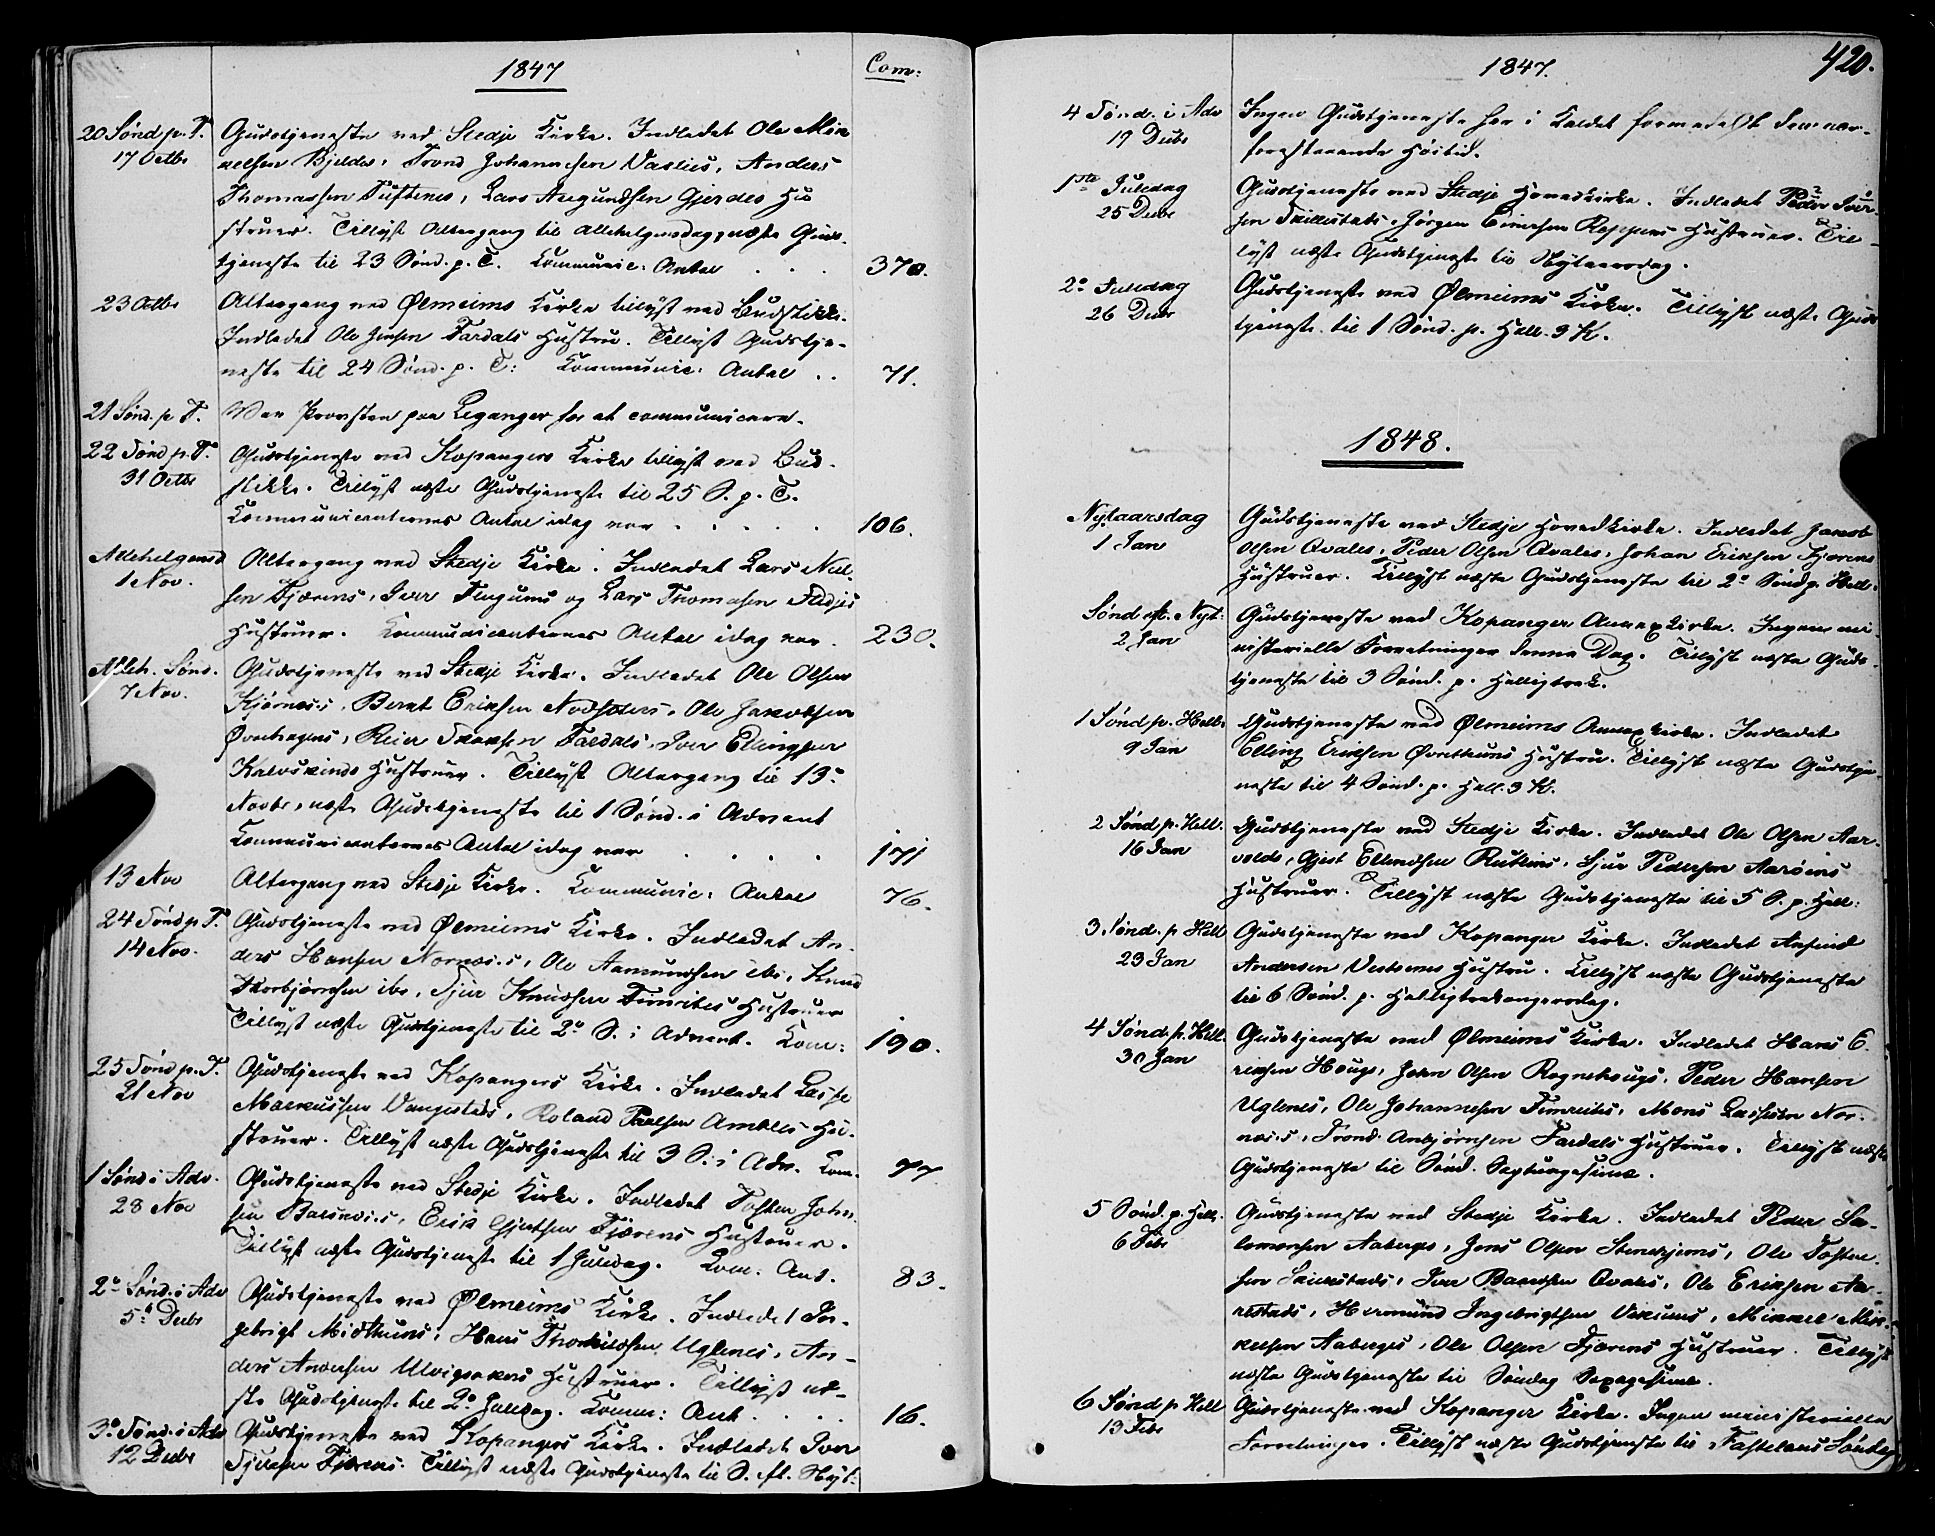 1847
Com:
20 Sønd p. T. Gudstjeneste ved Stedje Kirke. Indledet Ole Mik
17 Octbr kelsen Bjelde, Trond Johannesen Vasliis, Anders
Thomassen Tuftenes, Lars Amundsen Gjerdes Hu
struer. Tillyst Altergang til Allehelgensdag, næste Guds-
tjeneste til 23 Sønd. p. T. Communic: Antal . . . 370.
23 Octbr Altergang ved Ølmeims Kirke tillyst ved Budstikke.
Indledet Ole Jensen Fardals Hustru. Tillyst Gudstje-
neste til 24 Sønd. p. T: Kommunic: Antal . . 71.
21 Sønd. p T. Var Provsten paa Leganger for at communicere.
22 Sønd p. T. Gudstjeneste ved Kopangers Kirke tillyst ved Bud-
31 Octbr stikke. Tillyst næste Gudstjeneste til 25 S. p. T.
Kommunicanternes Antal idag var . . . . . 106.
Allehelgensd Altergang ved Stedje Kirke. Indledet Lars Niel-
1 Nov. sen Fjærens, Iver Flugums og Lars Thomasen Stedjes
Hustruer. Kommunicanternes Antal idag var . 230.
Alleh. Sønd. Gudstjeneste ved Stedje Kirke. Indledet Ole Olsen
7 Nov. Kjørnæs's, Bernt Eriksen Ole Jakobsen
Øvrehagens, Reier Fardals, Iver
Kalvskinds Hustruer. Tillyst Altergang til 13de
Novbr, næste Gudstjeneste til 1 Sønd. i Advent
Communicanternes Antal idag var . . . . 171
13 Nov Altergang ved Stedje Kirke. Communic: Antal 76.
24 Sønd p. T. Gudstjeneste ved Ølmeims Kirke. Indledet An-
14 Nov. ders Hansen Nornæs's, Ole Aamundsen ibi, Knud
Thorbjørnsen ibi, Sjur Knudsen Fimreites Hustruer
Tillyst næste Gudstjeneste til 2den S. i Advent. Kom: 190.
25 Sønd p. T. Gudstjeneste ved Kopangers Kirke. Indledet Lasse
21 Nov Markussen Vangestads, Roland Ambles Hu-
struer. Tillyst næste Gudstjeneste til 3 S. i Adv. Kom. 97.
1 Sønd i Adv. Gudstjeneste ved Stedje Kirke. Indledet Tosten John-
28 Nov sen Barsnæs's, Erik Gjertsen Fjærens Hustruer.
Tillyst næste Gudstjeneste til 1 Juledag. Kom. Ant. 83.
2den Sønd. i Adv Gudstjeneste ved Ølmeims Kirke. Indledet In-
5te Decbr gebrigt Midthuns, Hans Thorkildsen Uglenes, An-
ders Andersen Ulvigsakers Hustruer. Tillyst næ-
ste Gudstjeneste til 2den Juledag. Komm: Ant. . . . . 16.
3die Sønd. i Adv Gudstjeneste ved Kopangers Kirke. Indledet Iver
12 Decbr Fjærens. Tillyst næste Gudstjeneste til S. ft. Nyt:
1847.
420.
4 Sønd. i Adv Ingen Gudstjeneste her i Kaldet formedelst den nær-
19 Decbr forestaaende Høitid.
1ste Juledag Gudstjeneste ved Stedje Hovedkirke. Indledet Peder Iver-
25 Decbr sen Skillestads, Jørgen Einersen Reppens Hustruer. Til-
lyst næste Gudstjeneste til Nytaarsdag.
2den Juledag Gudstjeneste ved Ølmeims Kirke. Tillyst næste Guds
26 Decbr tjeneste til 1 Sønd. p. Hell. 3 K.
1848.
Nytaarsdag Gudstjeneste ved Stedje Hovedkirke. Indledet Jakob
1 Jan Olsen Qvales, Peder Olsen Qvales, Johan Eriksen Fjærens
Hustruer. Tillyst næste Gudstjeneste til 2den Sønd p. Hell:
Sønd ft. Nyt: Gudstjeneste ved Kopanger Annexkirke. Ingen mi-
2 Jan nisterielle Forretninger denne Dag. Tillyst næste Guds-
tjeneste til 3 Sønd. p. Helligtrek.
1 Sønd p. Hell: Gudstjeneste ved Ølmeims Annexkirke. Indledet
9 Jan Elling Eriksen Øvrethuns Hustru. Tillyst næste Gudstje-
neste til 4 Sønd. p. Hell. 3 K.
2 Sønd p. Hell. Gudstjeneste ved Stedje Kirke. Indledet Ole Olsen Aar-
16 Jan volds, Gjest Ellendsen Rutlins, Sjur Pedersen Aarøens
Hustruer. Tillyst næste Gudstjeneste til 5 S. p. Hell:
3 Sønd. p Hell Gudstjeneste ved Kopanger Kirke. Indledet Anfind
23 Jan Andersen Vestrems Hustru. Tillyst næste Gudstjeneste
til 6 Sønd. p. Helligtrekongersdag.
4 Sønd p. Hell. Gudstjeneste ved Ølmeims Kirke. Indledet Hans E-
30 Jan riksen Hougs, John Olsen Rognehougs, Peder Hansen
Uglenes, Ole Johannesen Fimreites, Mons Lassesen Nor-
næs's, Trond Anbjørnsen Fardals Hustruer. Tillyst næste
Gudstjeneste til Sønd. Septuagesima.
5 Sønd. p. Hell. Gudstjeneste ved Stedje Kirke. Indledet Peder Sa-
6 Febr lomonsen Aabergs, Jens Olsen Stenehjems, Ole Tosten-
sen Skilestads, Iver Baardsen Qvales, Ole Eriksen Aa-
restads, Hermund Ingebrigtsen Vikums, Mikkel Mik-
kelsen Aabergs, Ole Olsen Fjærens Hustruer. Tillyst
næste Gudstjeneste til Søndag Sexagesima.
6 Sønd p Hell Gudstjeneste ved Kopanger Kirke. Ingen ministerielle
13 Febr Forretninger. Tillyst næste Gudstjeneste til Fastelavns Søndag